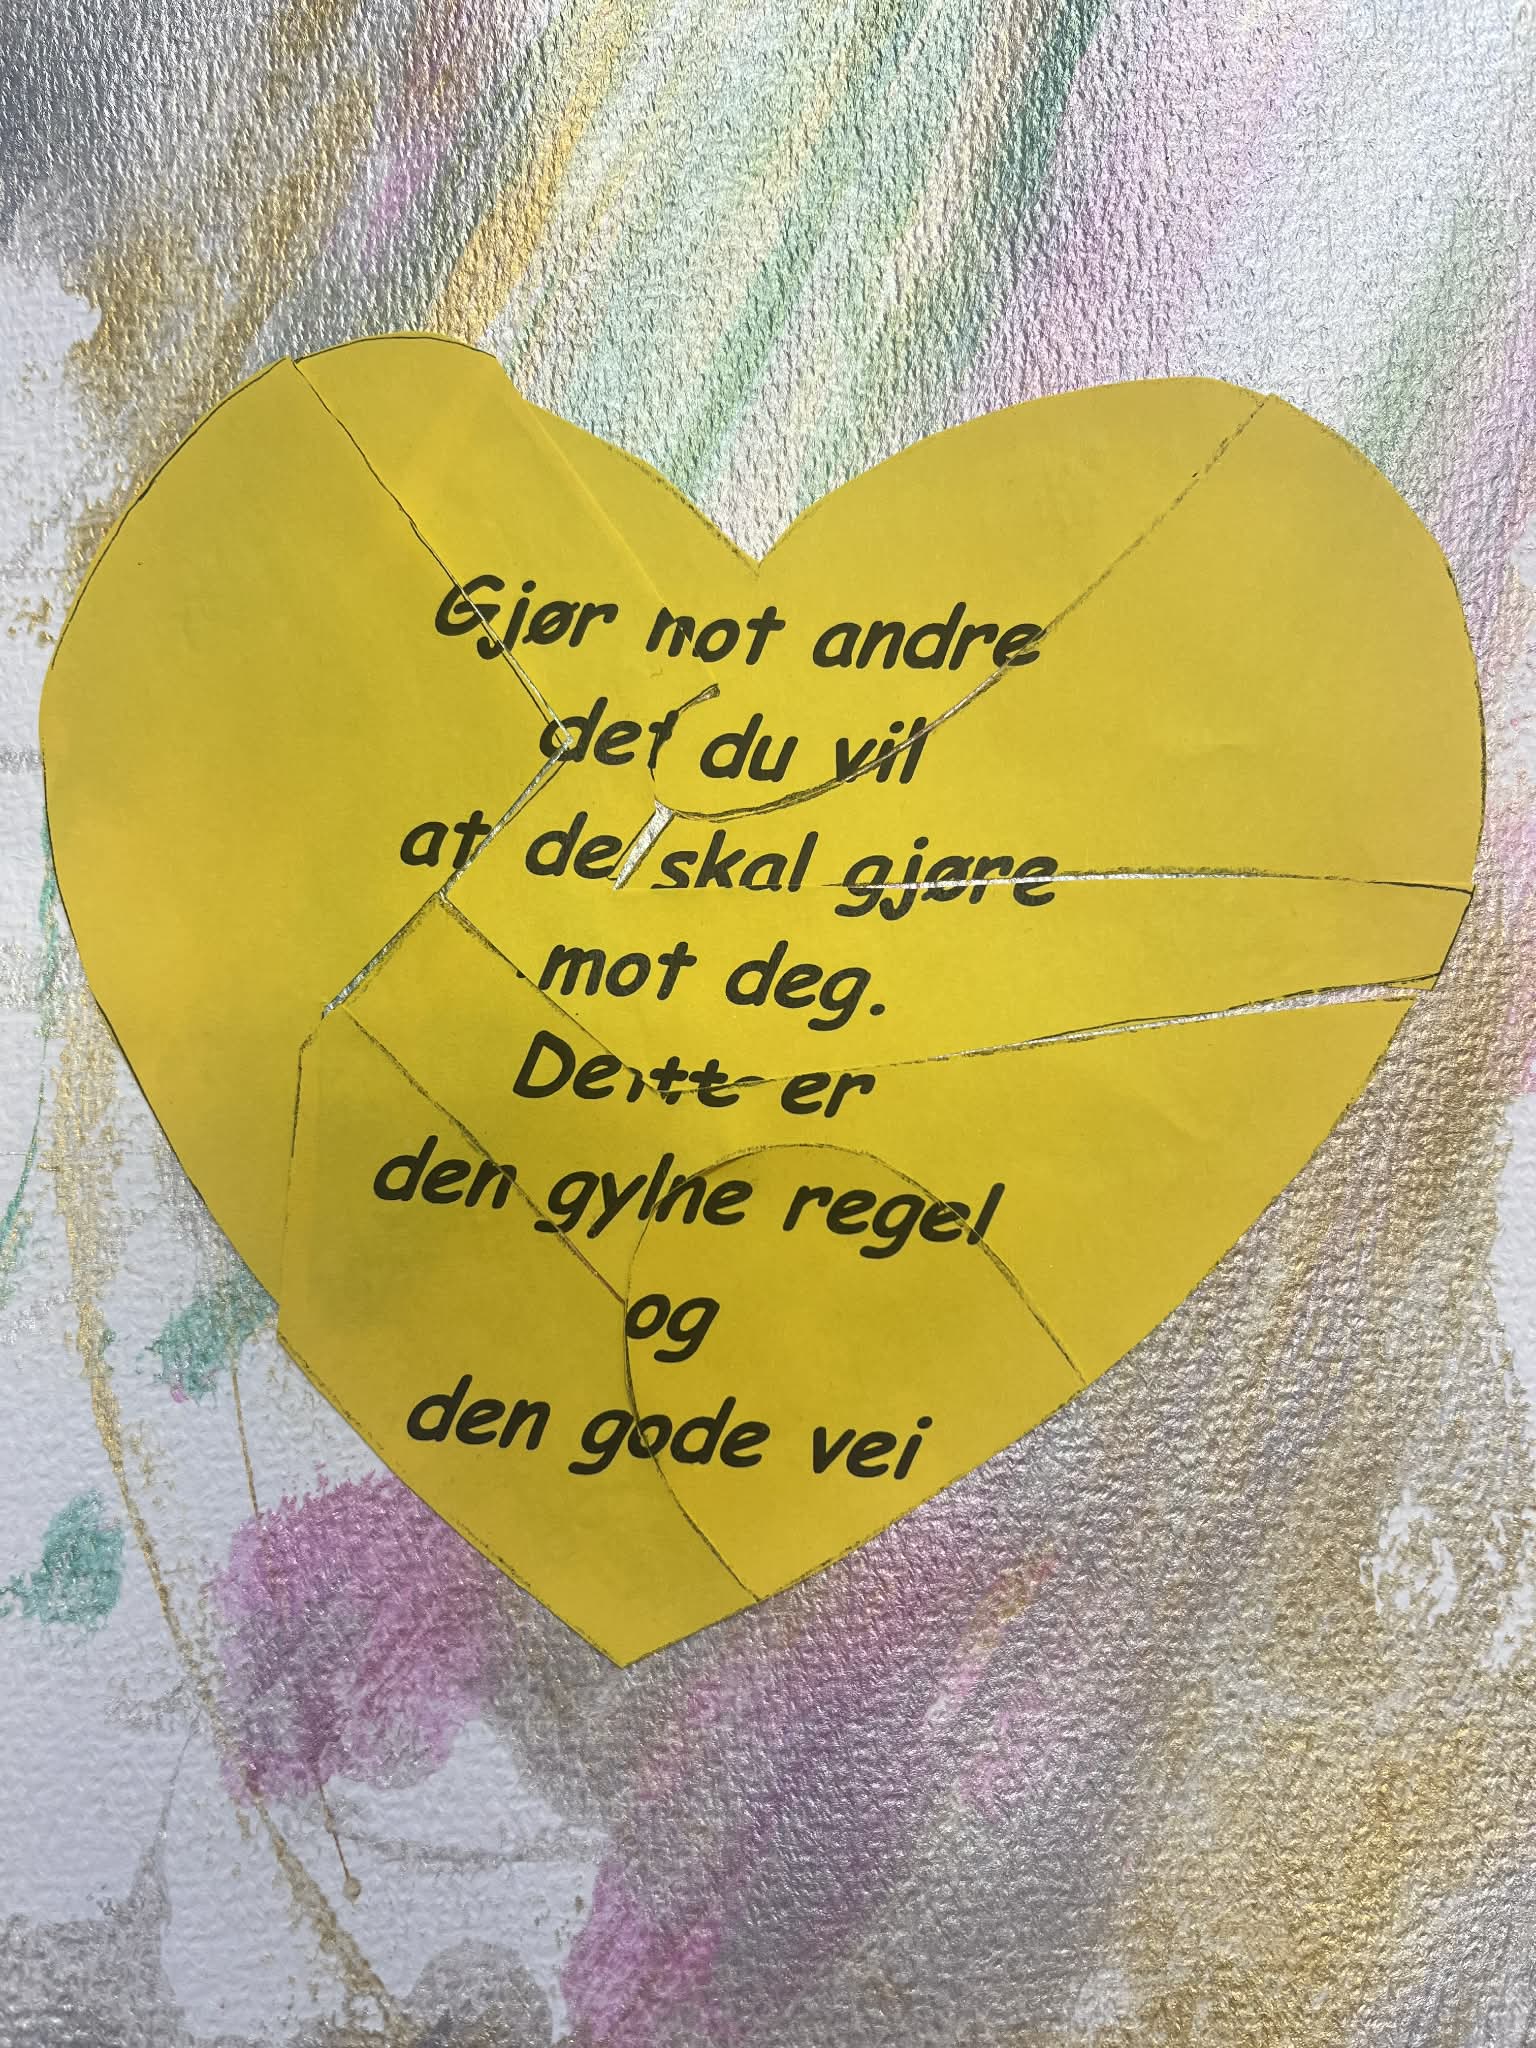 Gjør mot andre
det du vil
at de skal gjøre
mot deg.
Dette er
den gylne regel
og
den gode vei